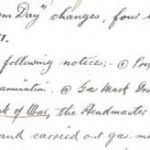 m Day" changes, four
following notice:- ⓐ Pos
amination. ⓐ Gas Mask
k of War, the Headmaster
and carried out gas